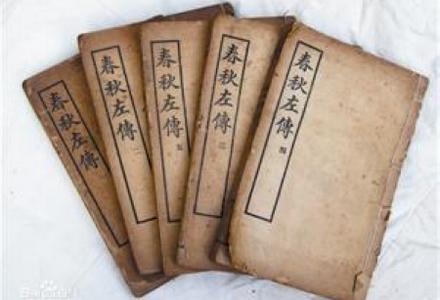 春秋左傳
春秋左傳 二
春秋左傳
春秋左傳
春秋左傳